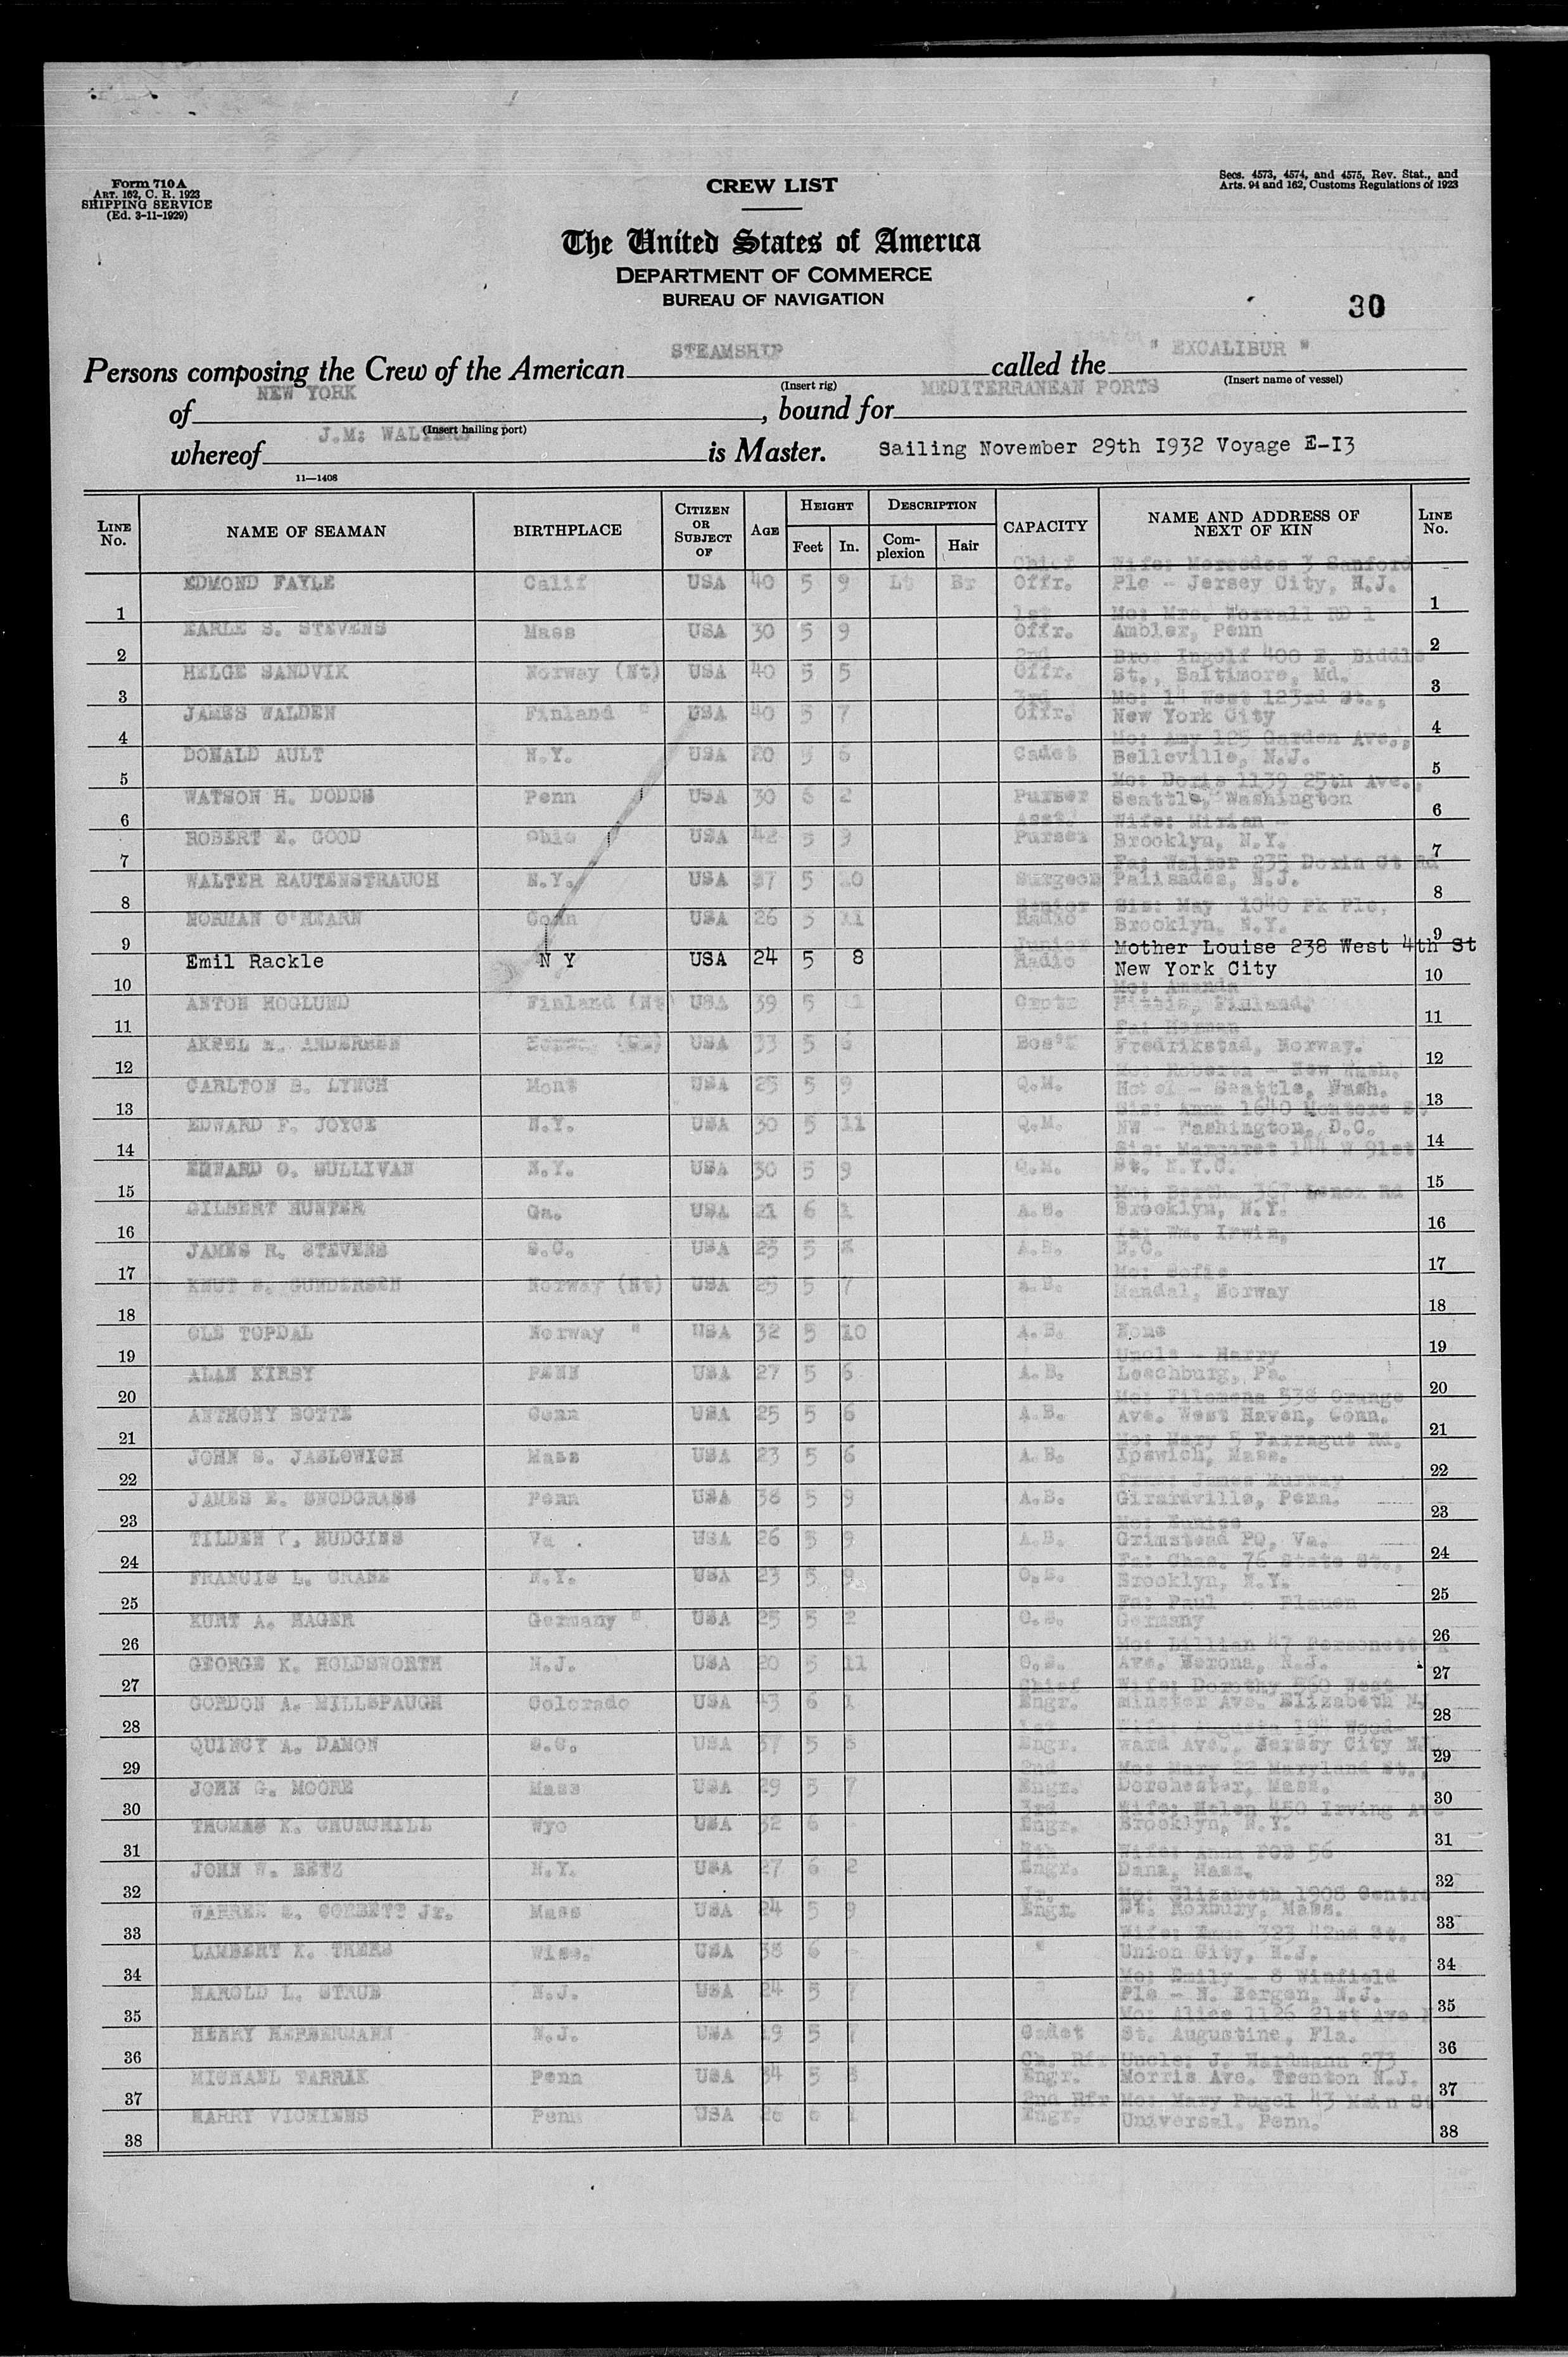 Form 710 A
ART. 162, C. R. 1923
SHIPPING SERVICE
(Ed. 3-11-1929)
CREW LIST
Secs. 4573, 4574, and 4575, Rev. Stat., and
Arts. 94 and 162, Customs Regulations of 1923
The United States of America
DEPARTMENT OF COMMERCE
BUREAU OF NAVIGATION
30
Persons composing the Crew of the American STEAMSHIP called the " EXCALIBUR "
(Insert rig) (Insert name of vessel)
of NEW YORK, bound for MEDITERRANEAN PORTS
(Insert hailing port)
whereof J.M: WALTERS is Master. Sailing November 29th I932 Voyage E-I3
11—1408
LINE No. NAME OF SEAMAN BIRTHPLACE CITIZEN OR SUBJECT OF AGE HEIGHT Feet In. DESCRIPTION Complexion Hair CAPACITY NAME AND ADDRESS OF NEXT OF KIN LINE No.
Chief Wife: Mercedes 3 Sanford
1 EDMOND FAYLE Calif USA 40 5 9 Lt Br Offr. Plc - Jersey City, N.J. 1
1st Mo: Mrs. Worrall RD 1
2 EARLE S. STEVENS Mass USA 30 5 9 Offr. Ambler, Penn 2
2nd Bro: Ingolf 400 E. Biddle
3 HELGE SANDVIK Norway (Nt) USA 40 5 5 Offr. St., Baltimore, Md. 3
3rd Mo: 14 West 123rd St.,
4 JAMES WALDEN Finland " USA 40 5 7 Offr. New York City 4
Mo: Amy 125 Garden Ave.,
5 DONALD AULT N.Y. USA 20 5 6 Cadet Belleville, N.J. 5
Mo: Doris 1139 25th Ave.,
6 WATSON H. DODDS Penn USA 30 6 2 Purser Seattle, Washington 6
Asst. Wife: Mirian -
7 ROBERT E. GOOD Ohio USA 42 5 9 Purser Brooklyn, N.Y. 7
Fa: Walter 235 Dorin Ct Rd
8 WALTER RAUTENSTRAUCH N.Y. USA 37 5 10 Surgeon Palisades, N.J. 8
Senior Sis: May 1040 Pk Plc,
9 NORMAN O'HEARN Conn USA 26 5 11 Radio Brooklyn, N.Y. 9
Junior Mother Louise 238 West 4th St
10 Emil Rackle N Y USA 24 5 8 Radio New York City 10
Mo: Amanda
11 ANTON HOGLUND Finland (Nt) USA 39 5 11 Crptr Finland. 11
Fa: Herman
12 AKSEL E. ANDERSEN Norway (Nt) USA 33 5 6 Bos'n Fredrikstad, Norway. 12
Mo: Roberta - New Wash.
13 CARLTON B. LYNCH Mont USA 25 5 9 Q.M. Hotel - Seattle, Wash. 13
Sis: Anna 1640 St
14 EDWARD F. JOYCE N.Y. USA 30 5 11 Q.M. NW - Washington, D.C. 14
Sis: Margaret 144 W 91st
15 EDWARD O. SULLIVAN N.Y. USA 30 5 9 Q.M. St. N.Y.C. 15
Mo: Bertha 367 Lenox Rd
16 GILBERT HUNTER Ga. USA 21 6 1 A.B. Brooklyn, N.Y. 16
Fa: Wm. Irwin,
17 JAMES R. STEVENS S.C. USA 25 5 A.B. S.C. 17
Mo: Sofie
18 KNUT S. GUNDERSEN Norway (Nt) USA 25 5 7 A.B. Mandal, Norway 18
19 OLE TOPDAL Norway " USA 32 5 10 A.B. None 19
Uncle - Harry
20 ALAN KIRBY PENN USA 27 5 6 A.B. Leechburg, Pa. 20
Mo: Filomena 538 Orange
21 ANTHONY BOTTE Conn USA 25 5 6 A.B. Ave. West Haven, Conn. 21
Mo: Mary 5 Farragut Rd.
22 JOHN S. JASLOWICH Mass USA 23 5 6 A.B. Ipswich, Mass. 22
James Murray
23 JAMES E. SNODGRASS Penn USA 38 5 9 A.B. Girardville, Penn. 23
Mo: Eunice
24 TILDEN HUDGINS Va . USA 26 5 9 A.B. Grimstead PO, Va. 24
Fa: Chas. 76 State St.,
25 FRANCIS L. CRANE N.Y. USA 23 5 9 O.S. Brooklyn, N.Y. 25
Fa: Paul - Plauen
26 KURT A. HAGER Germany " USA 25 5 2 O.S. Germany 26
Mo: Lillian 47
27 GEORGE K. HOLDSWORTH N.J. USA 20 5 11 O.S. Ave. Verona, N.J. 27
Chief Wife: Dorothy 960 West-
28 GORDON A. MILLSPAUGH Colorado USA 43 6 1 Engr. minster Ave. Elizabeth NJ 28
1st Wife: Augusta 194 Wood-
29 QUINCY A. DAMON S.C. USA 37 5 Engr. ward Ave., Jersey City NJ 29
2nd Mo: Mary 22 Maryland St.,
30 JOHN G. MOORE Mass USA 29 5 7 Engr. Dorchester, Mass. 30
3rd Wife: Helen 450 Irving Ave
31 THOMAS K. CHURCHILL Wyo USA 32 6 Engr. Brooklyn, N.Y. 31
Wife: Anna POB 56
32 JOHN W. BETZ N.Y. USA 27 6 2 Engr. Dana, Mass. 32
Jr. Mo: Elizabeth 1908 Centre
33 WARREN E. CORBETT Jr. Mass USA 24 5 9 Engr. St. Roxbury, Mass. 33
Wife: Emma 323 42nd St.
34 LAMBERT K. TREES Wisc. USA 38 6 - " Union City, N.J. 34
Mo: Emily - 8 Winfield
35 HAROLD L. STRUB N.J. USA 24 5 7 " Plc - N. Bergen, N.J. 35
Mo: Alice 1126 21st Ave
36 HENRY HERBERMANN N.J. USA 19 5 7 Cadet St. Augustine, Fla. 36
Ch. Rfr Uncle: J. Hardmann 273
37 MICHAEL TARRIK Penn USA 34 5 8 Engr. Morris Ave. Trenton N.J. 37
2nd Rfr Mo: Mary Pugel 43 Main St
38 HARRY Penn USA 26 6 1 Engr. Universal. Penn. 38